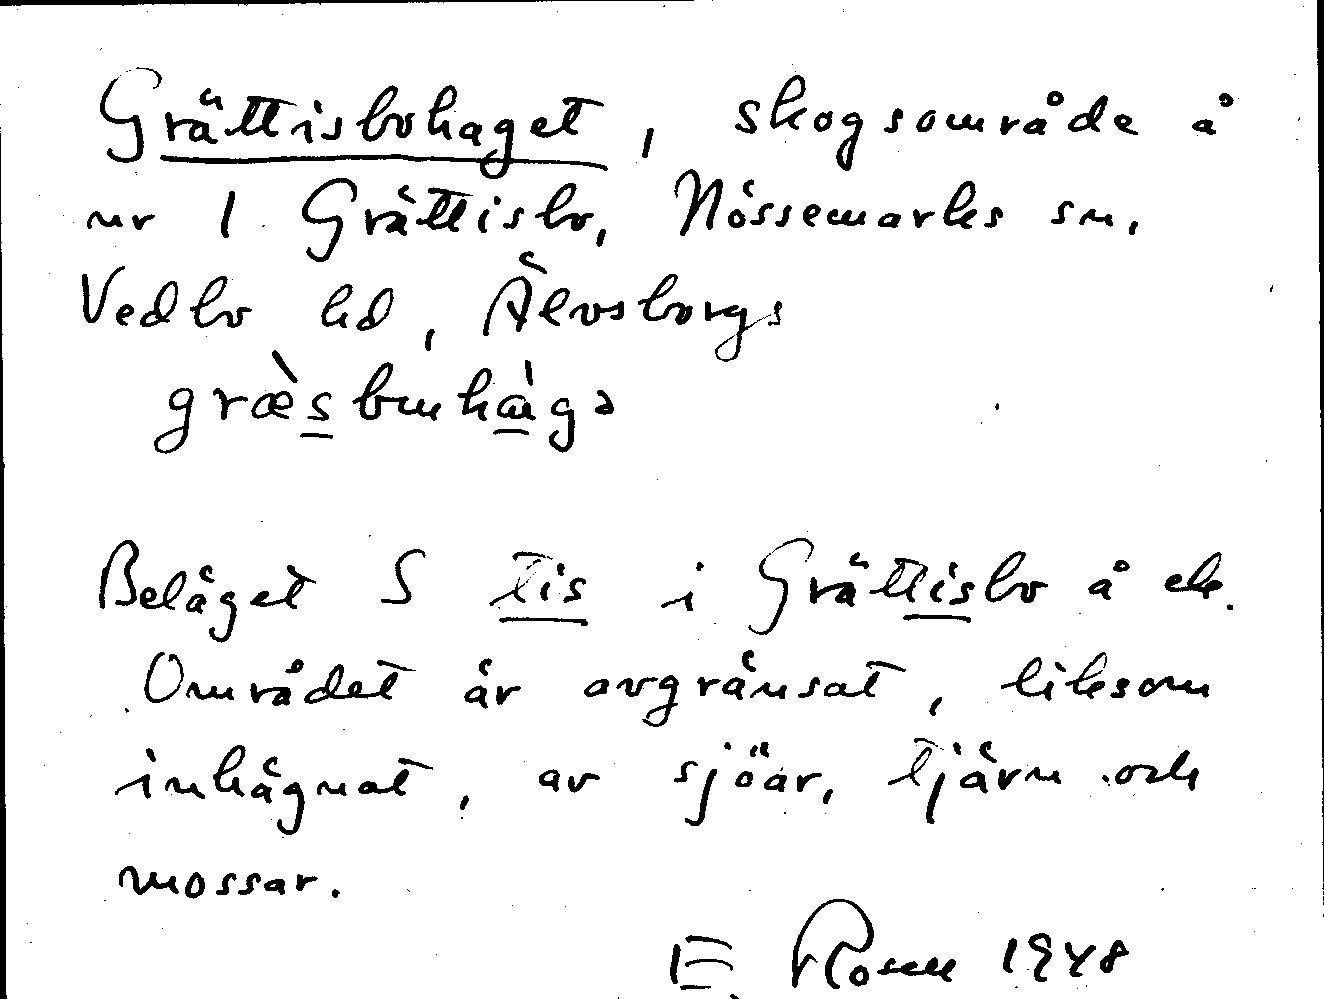 Grättisbohaget, skogsområde å
nr 1 Grättisbo, Nössemarks sn,
Vedbo hd, Älvsborgs
græ̀sbuhàgə
Beläget S tis i Grättisbo å ek.
Området är avgränsat, liksom
inhägnat, av sjöar, tjärn och
mossar.
E. Rosell 1948